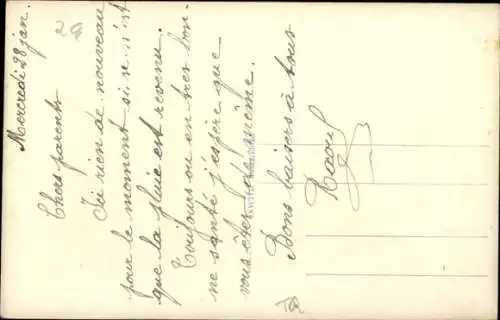 Mercredi 28 jan.
Chers parents
Ici rien de nouveau
pour le moment si ce n'est
que la pluie est revenu.
Toujours ou en très bon-
ne santé j'espère que
vous êtes de même.
Bons baisers à tous
Raoul